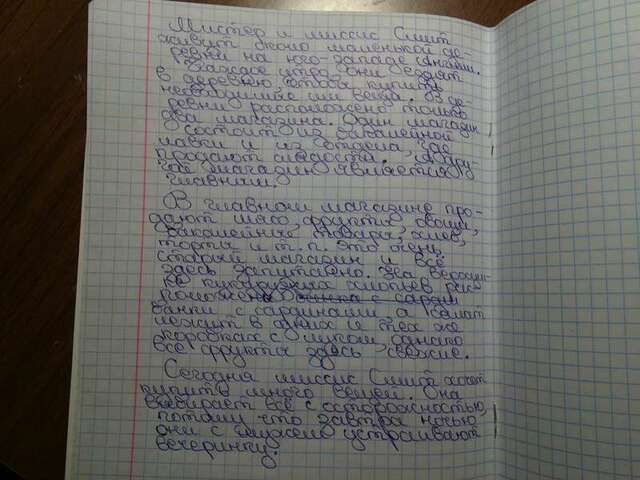 Мистер и миссис Смит
живут около маленькой де-
ревни на юго-западе Англии.
Каждое утро они ездят
в деревню, чтобы купить
необходимые им вещи. В де-
ревне расположено только
два магазина. Один магазин
состоит из бакалейной
лавки и из отдела где
продают сладости. А дру-
гой магазин является
главным.
В главном магазине про-
дают мясо, фрукты, овощи,
бакалейные товары, хлеб,
торты и т.п. Это очень
старый магазин и всё
здесь запутанно. На верхуш-
ке кукурузных хлопьев рас-
положены
банки с сардинами а салат
лежит в одних и тех же
коробках с луком, однако
все фрукты здесь свежие.
Сегодня миссис Смит хочет
купить много вещей. Она
выбирает все с осторожностью,
потому что завтра ночью
они с мужем устраивают
вечеринку.